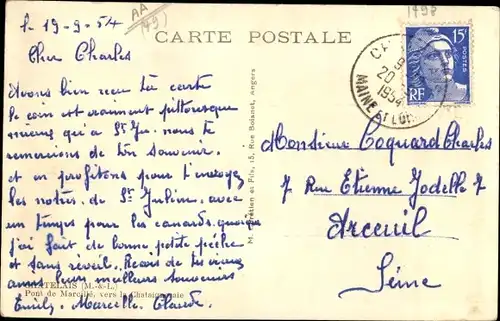 le 19-9-54
AA
(49)
1498
CARTE POSTALE
Cher Charles
Avons bien reçu ta carte
le coin est vraiment pittoresque
mieux qu'à St Ju. nous te
remercions de ton souvenir
et en profitons pour t'envoyer
les notres. de St Julien. avec
un temps pour les canards. quoique
j'ai fait de bonne petite pêche
et sans réveil. Reçois de tes vieux
amis leurs meilleurs souvenirs
Emily. Marcelle. Claude.
CHATELAIS (M.-&-L.)
Pont de Marcillé, vers la Chataigneraie
et Fils, 15, Rue Boisnet, Angers
15F
POSTES
RF
20
1954
MAINE ET LOIRE
Monsieur Coquard Charles
7 Rue Étienne Jodelle 7
Arcueil
Seine